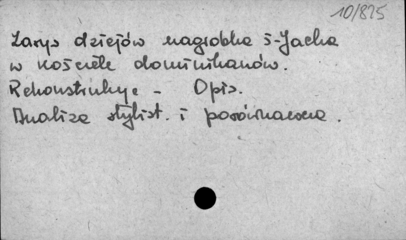 10/825
Zarys dziejów nagrobka ś-Jacka
w kościele dominikanów.
Rekonstrukcje - Opis.
Analiza stylist. i porównawcza.